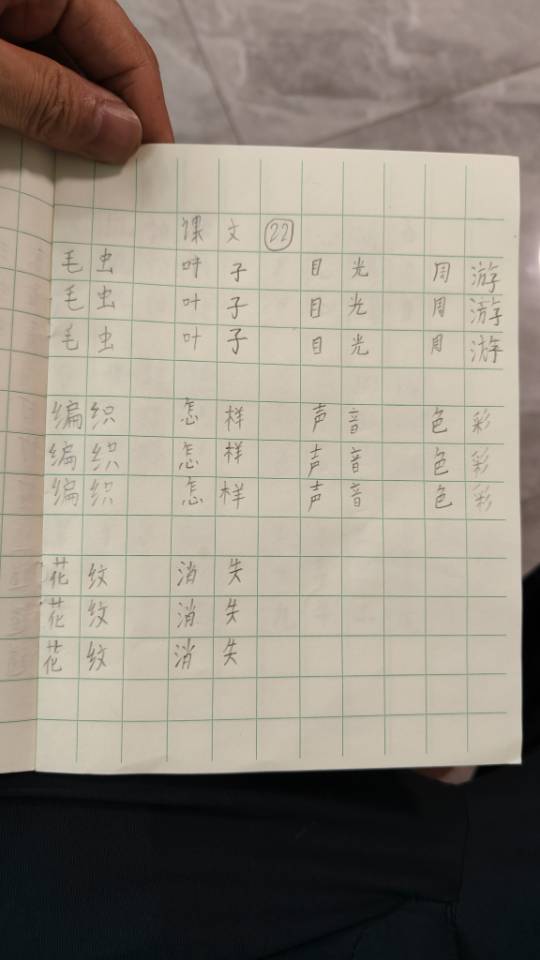 课文 22
毛虫 叶子 目光 周游
毛虫 叶子 目光 周游
毛虫 叶子 目光 周游
编织 怎样 声音 色彩
编织 怎样 声音 色彩
编织 怎样 声音 色彩
花纹 消失
花纹 消失
花纹 消失